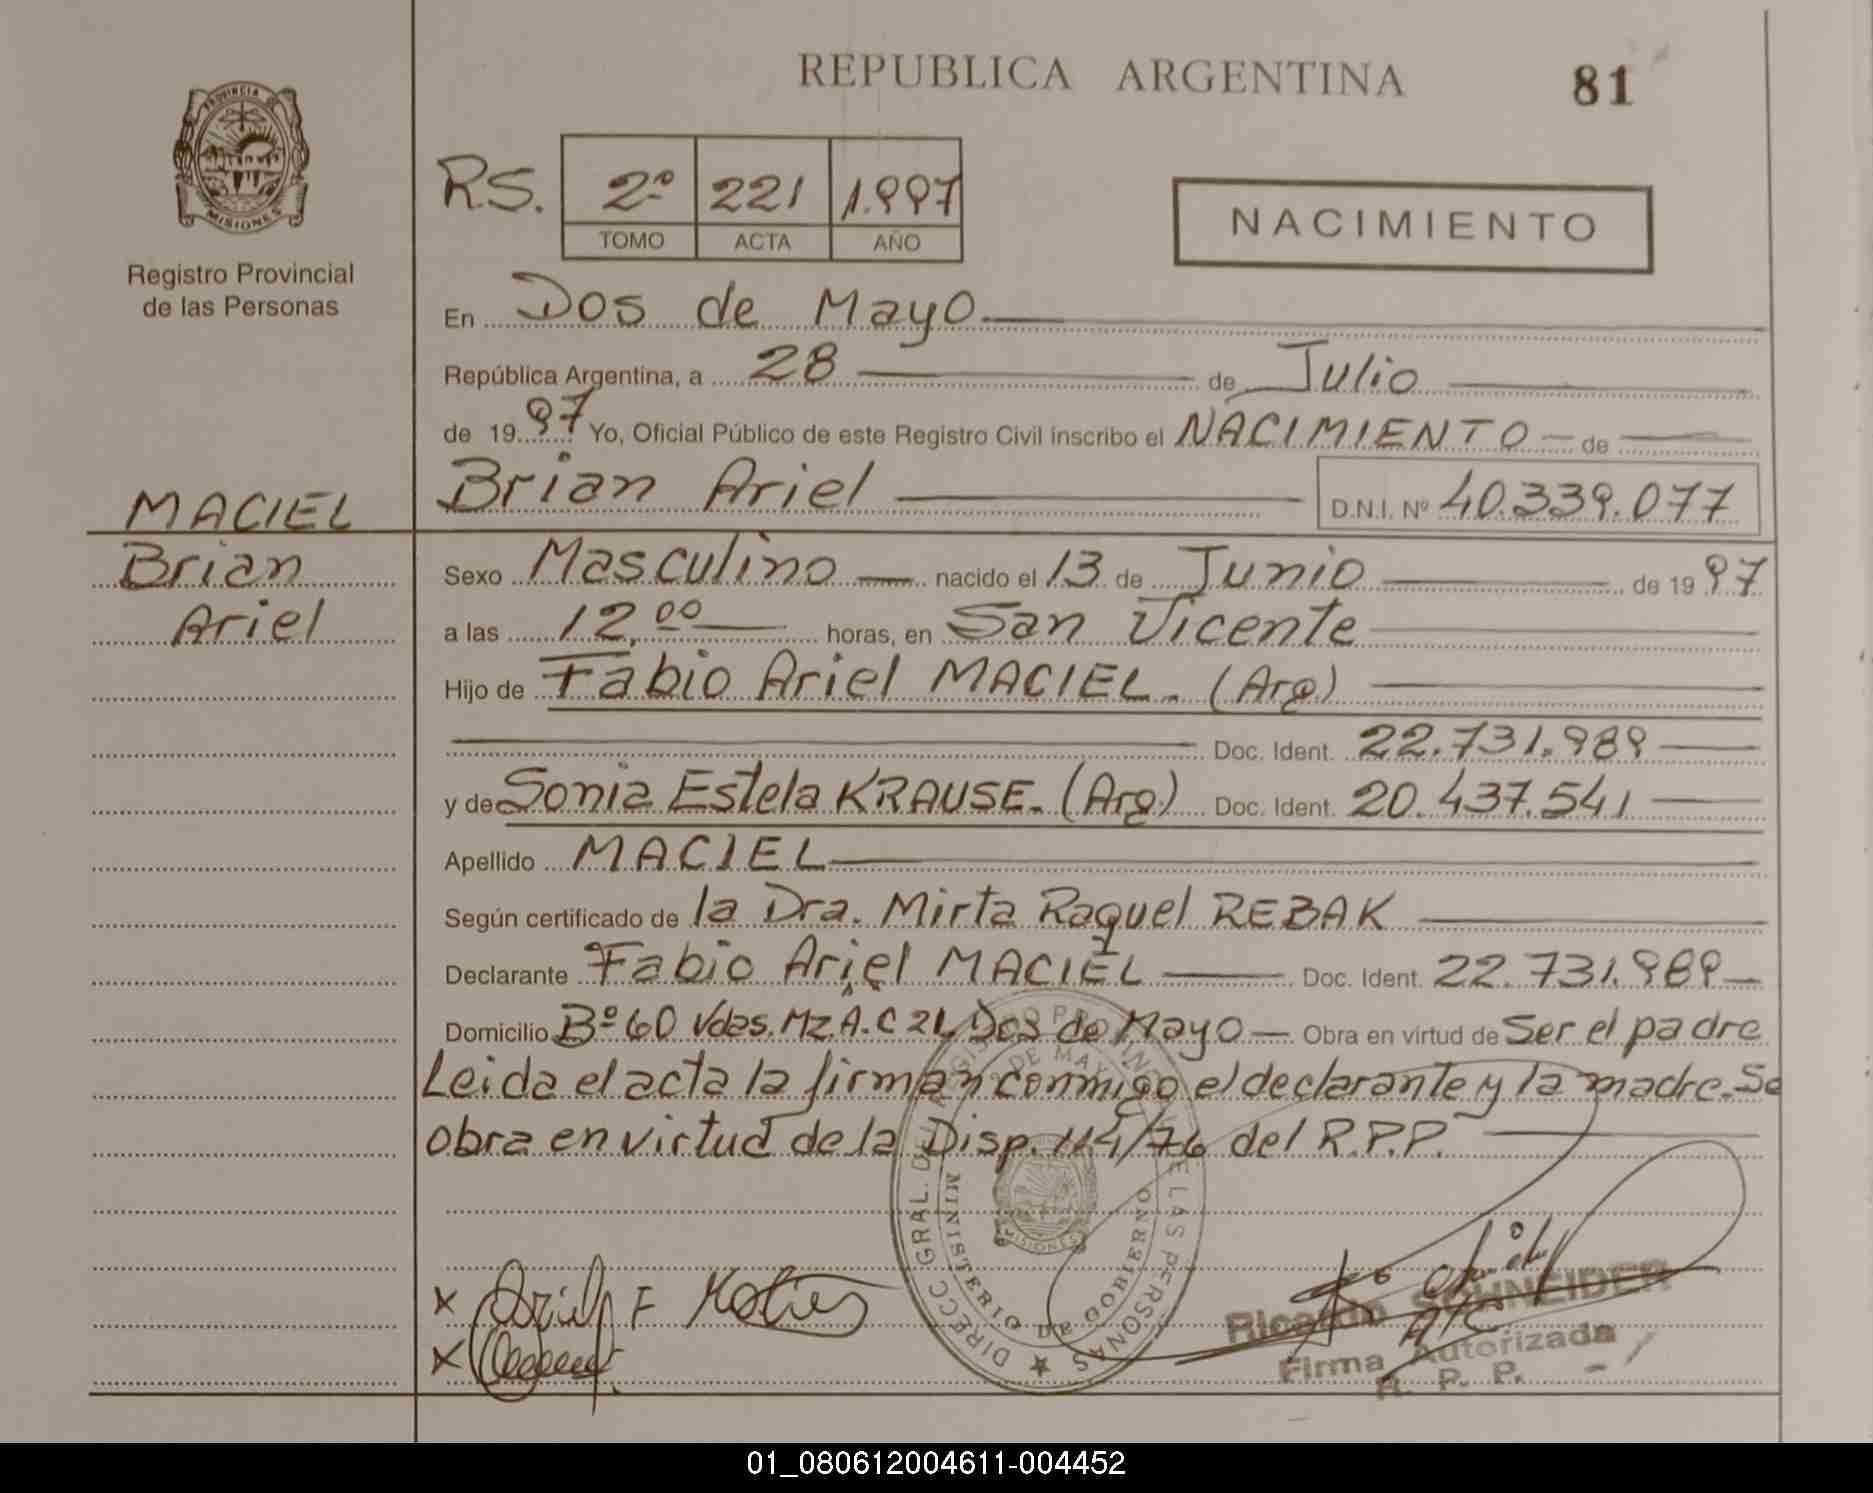 REPUBLICA ARGENTINA
81
PROVINCIA DE
MISIONES
Registro Provincial
de las Personas
RS.
2º 221 1.997
TOMO ACTA AÑO
NACIMIENTO
En Dos de Mayo
República Argentina, a 28 de Julio
de 1997 Yo, Oficial Público de este Registro Civil inscribo el NACIMIENTO de
MACIEL
Brian Ariel D.N.I. Nº 40.339.077
Brian
Ariel
Sexo Masculino nacido el 13 de Junio de 1997
a las 12,00 horas, en San Vicente
Hijo de Fabio Ariel MACIEL. (Arg)
Doc. Ident. 22.731.989
y de Sonia Estela KRAUSE. (Arg.) Doc. Ident. 20.437.541
Apellido MACIEL
Según certificado de la Dra. Mirta Raquel REBAK
Declarante Fabio Ariel MACIEL Doc. Ident. 22.731.989
Domicilio Bº 60 Vdas. Mz. A. C 21, Dos de Mayo Obra en virtud de Ser el padre
Leida el acta la firman conmigo el declarante y la madre. Se
obra en virtud de la Disp. 114/76 del R.P.P.
DIRECC GRAL. DEL REGISTRO PROVINCIAL DE LAS PERSONAS
MINISTERIO DE GOBIERNO
2 DE MAYO
MISIONES
x
x
Ricardo SCHNEIDER
Firma Autorizada
R. P. P.
01_080612004611-004452